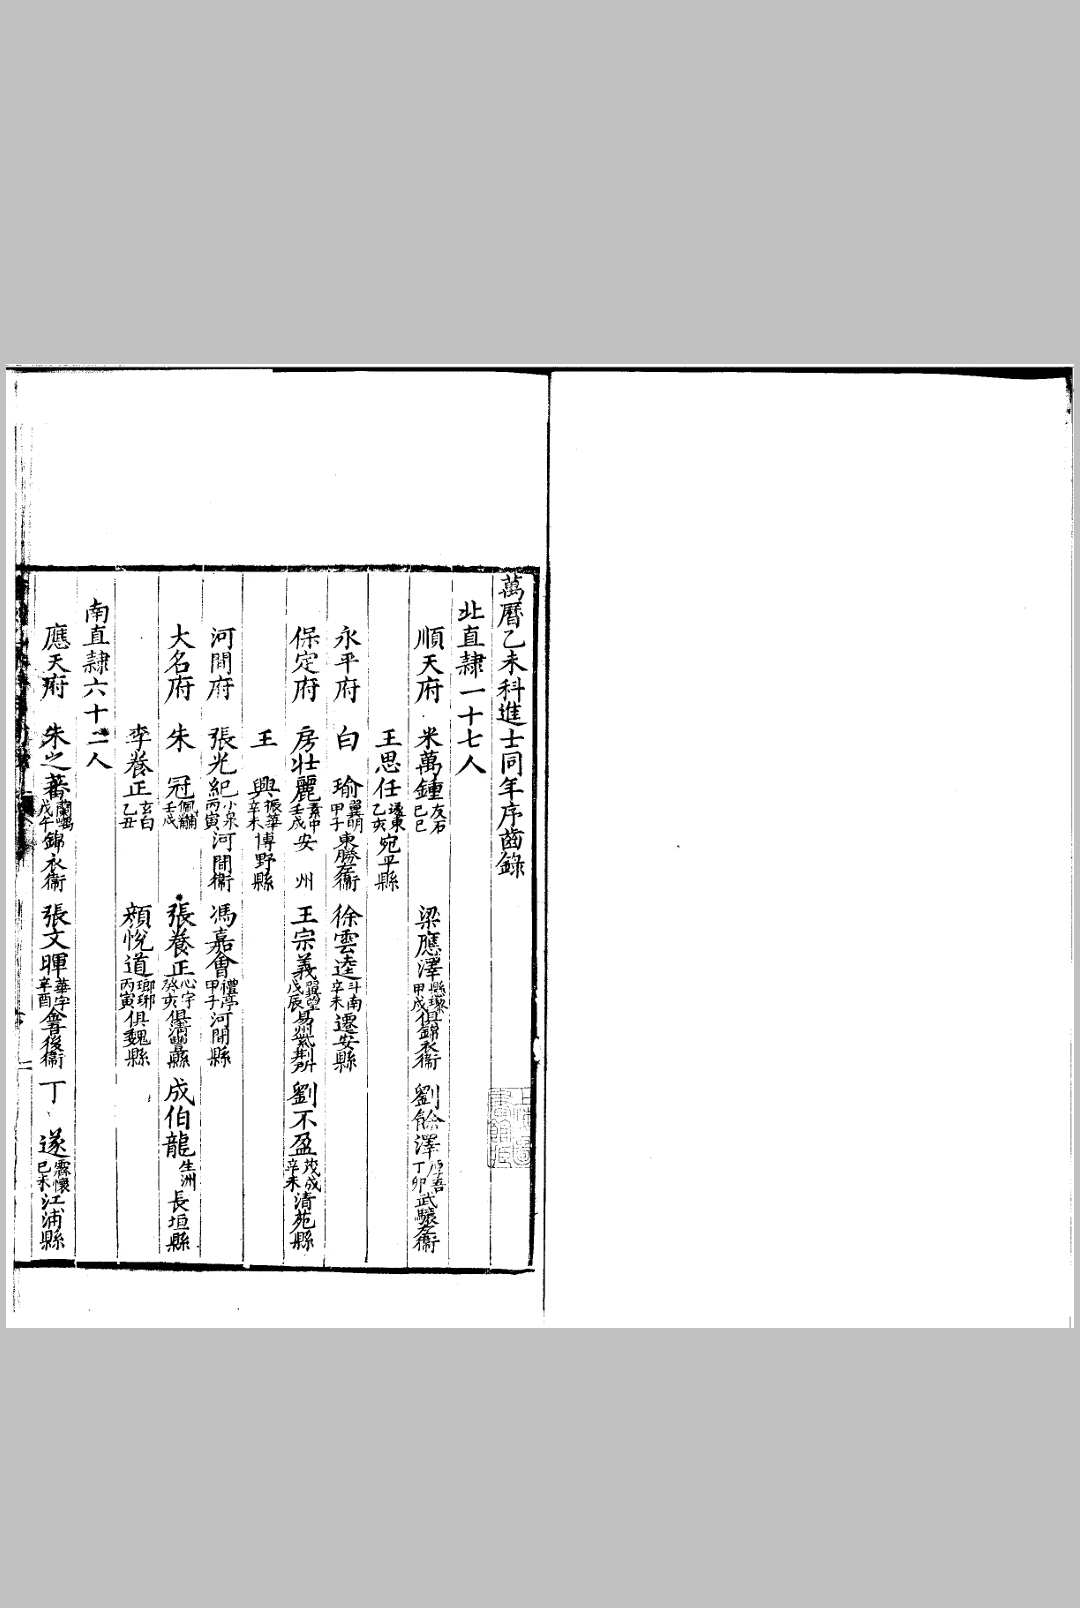 萬曆乙未科進士同年序齒錄
北直隷一十七人
順天府 米萬鍾 友石 己巳 梁應澤 縣璟 甲戌 俱錦衣衞 劉餘澤 吾 丁卯 武驤左衞
王思任 遂東 乙亥 宛平縣
永平府 白 瑜 翼明 甲子 東勝左衞 徐雲逵 斗南 辛未 遷安縣
保定府 房壯麗 素中 壬戌 安 州 王宗義 翼望 戊辰 易州紫荆所 劉不盈 茂成 辛未 清苑縣
王 興 振華 辛未 博野縣
河間府 張光紀 小泉 丙寅 河間衞 馮嘉會 禮亭 甲子 河間縣
大名府 朱 冠 佩 壬戌 張養正 心宇 癸亥 俱清豐縣 成伯龍 生洲 長垣縣
李養正 玄白 乙丑 顏悅道 瑯琊 丙寅 俱魏縣
南直隷六十二人
應天府 朱之蕃 蘭嵎 戊午 錦衣衞 張文暉 華宇 辛酉 會後衞 丁 遂 霖懷 己未 江浦縣
一